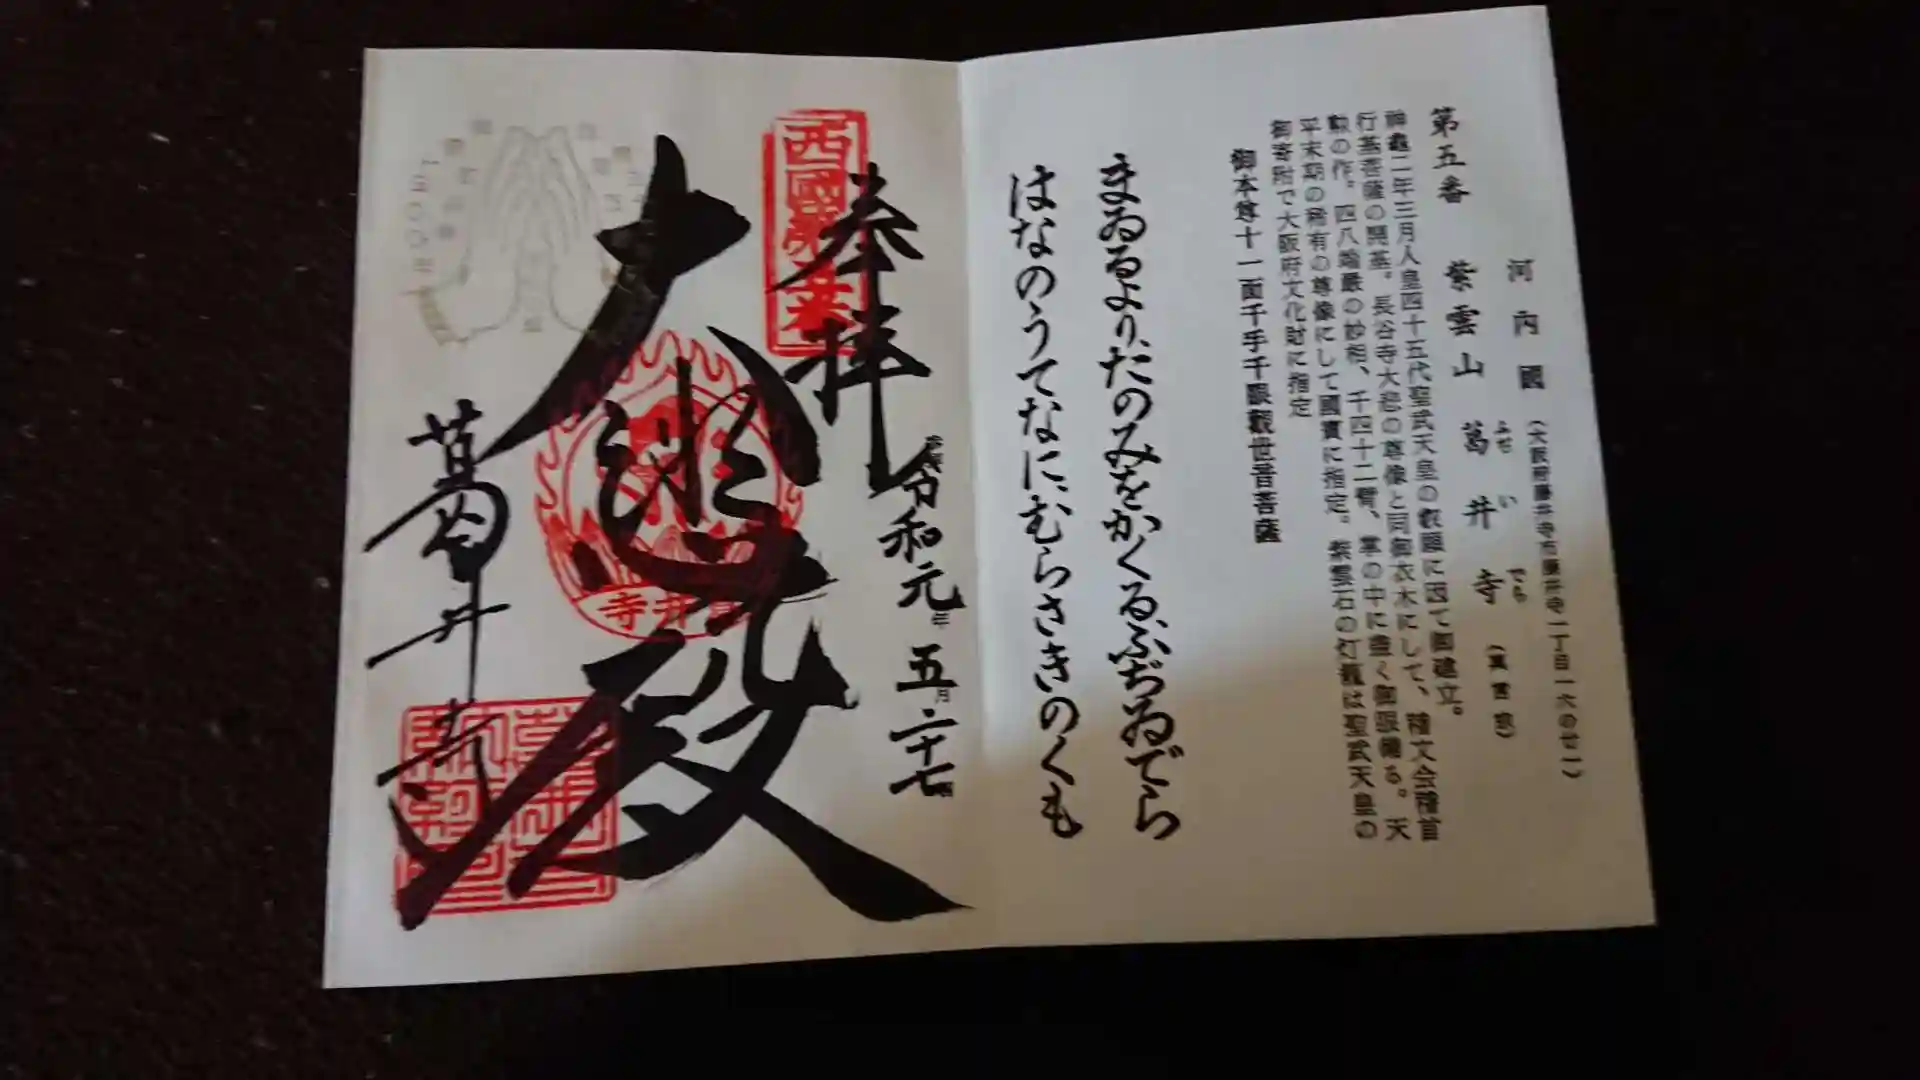 河内國(大阪府藤井寺市藤井寺一丁目一六の廿一)
第五番 紫雲山 葛井寺(真言宗)
ふせ い でら
神龜二年三月人皇四十五代聖武天皇の叡願に因て御建立。
行基菩薩の開基。長谷寺大悲の尊像と同御衣木にして、稽文会稽首
勲の作。四八端嚴の妙相、千四十二臂、掌の中に盡く御眼備る。天
平末期の稀有の尊像にして國寳に指定。紫雲石の灯籠は聖武天皇の
御寄附で大阪府文化財に指定
御本尊十一面千手千眼觀世音菩薩
まゐるよりたのみをかくるふぢゐでら
はなのうてなにむらさきのくも
奉拝
西國第五番
令和元年五月二十七日
大悲殿
葛井寺
葛井寺
1300年